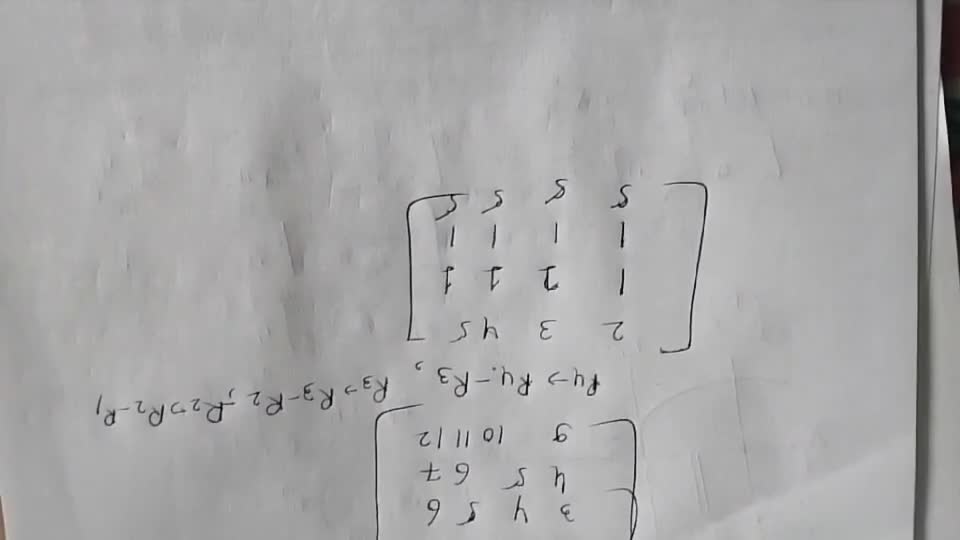 3 4 5 6
4 5 6 7
9 10 11 12
R4 → R4 - R3, R3 → R3 - R2, R2 → R2 - R1
2 3 4 5
1 1 1 1
1 1 1 1
5 5 5 5